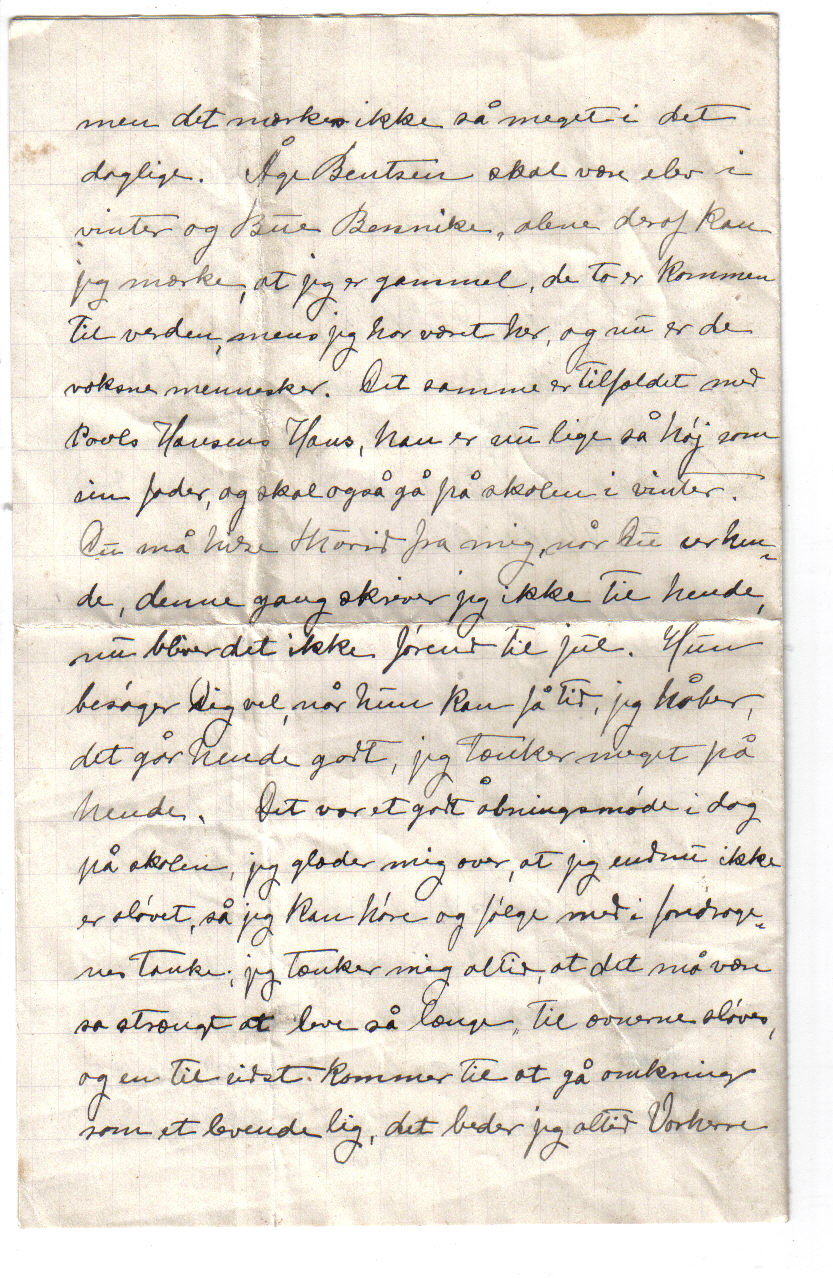 men det mærkes ikke så meget i det
daglige. Åge Bentsen skal være elev i
vinter og Bue Bennike, alene deraf kan
jeg mærke, at jeg er gammel, de to er kommen
til verden, mens jeg har været her, og nu er de
voksne mennesker. Det samme er tilfældet med
Povls Hansens Hans, han er nu lige så høj som
sin fader, og skal også gå på skolen i vinter.
Du må hilse fra mig, når Du ser hen-
de, denne gang skriver jeg ikke til hende,
nu bliver det ikke førend til jul. Hun
besøger Dig vel, når hun kan få tid, jeg håber,
det går hende godt, jeg tænker meget på
hende. Det var et godt åbningsmøde i dag
på skolen, jeg glæder mig over, at jeg endnu ikke
er sløvet, så jeg kan høre og følge med i foredrage-
nes tanke; jeg tænker mig altid, at det må være
så strængt at leve så længe, til ævnerne sløves,
og en til sidst kommer til at gå omkring
som et levende lig, det beder jeg altid Vorherre